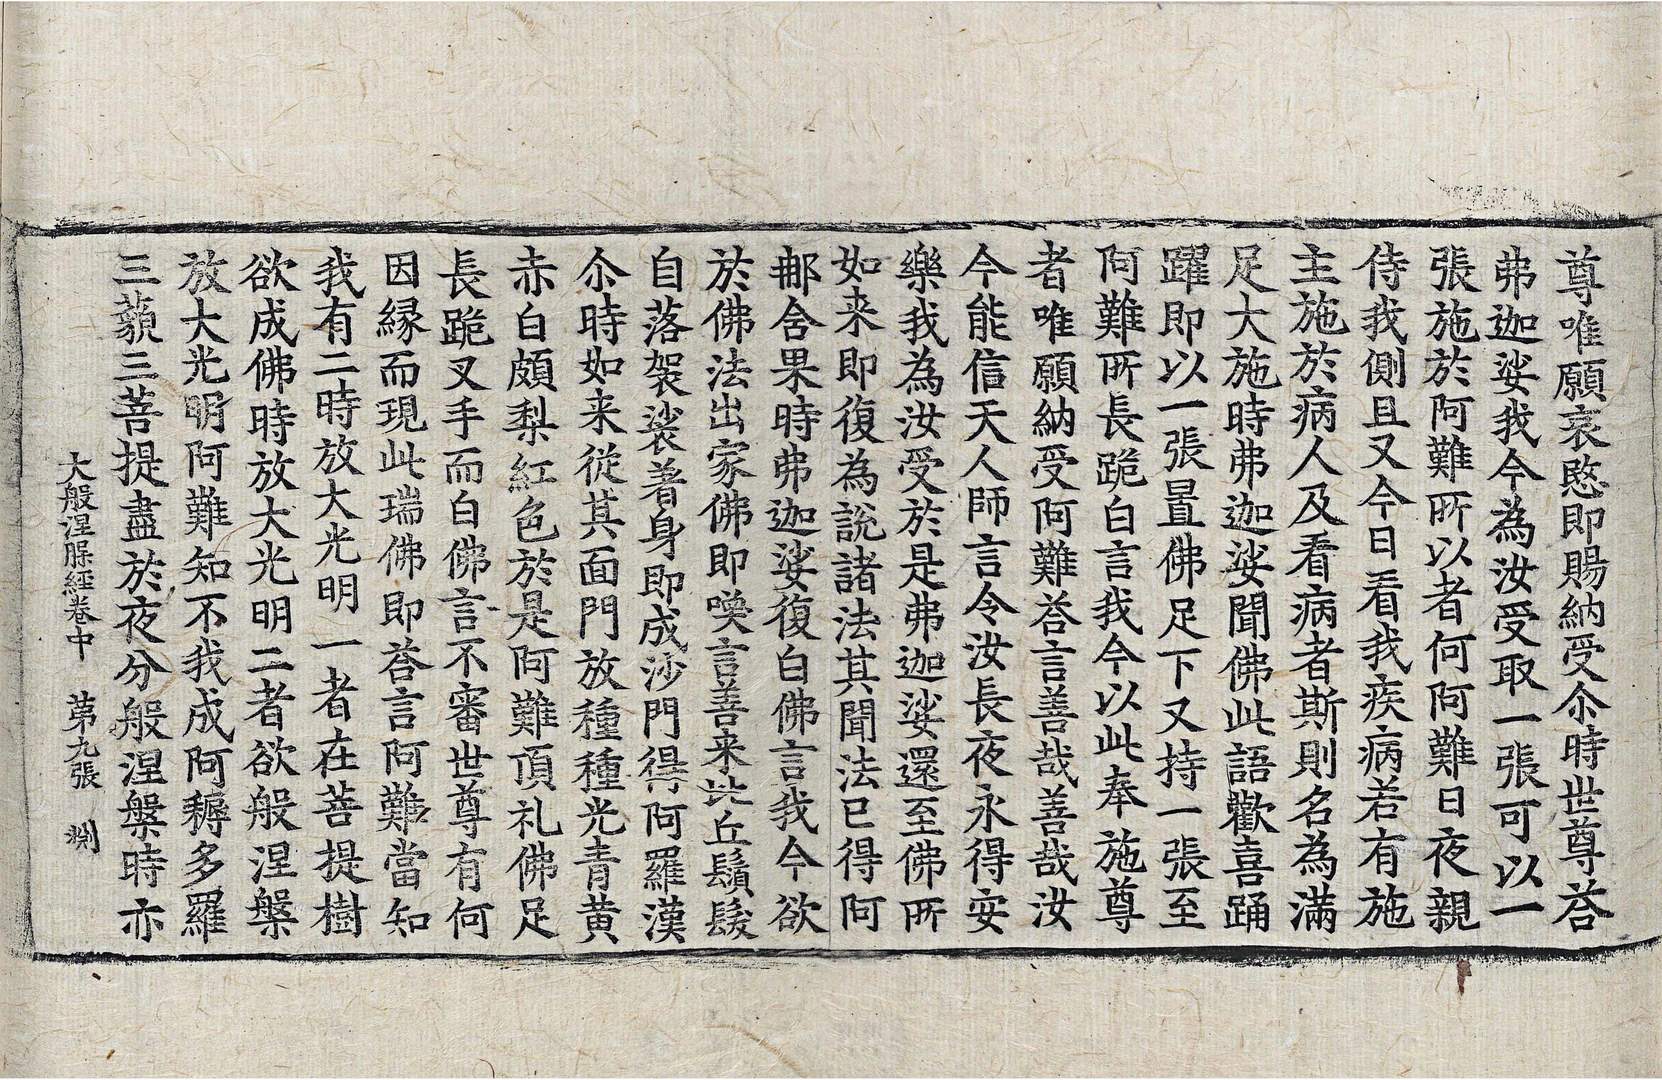 尊唯願哀愍即賜納受尒時世尊荅
弗迦娑我今為汝受取一張可以一
張施於阿難所以者何阿難日夜親
侍我側且又今日看我疾病若有施
主施於病人及看病者斯則名為滿
足大施時弗迦娑聞佛此語歡喜踊
躍即以一張置佛足下又持一張至
阿難所長跪白言我今以此奉施尊
者唯願納受阿難荅言善哉善哉汝
今能信天人師言令汝長夜永得安
樂我為汝受於是弗迦娑還至佛所
如来即復為說諸法其聞法已得阿
郍舍果時弗迦娑復白佛言我今欲
於佛法出家佛即喚言善来比丘鬚髮
自落袈裟著身即成沙門得阿羅漢
尒時如来從其面門放種種光青黄
赤白頗梨紅色於是阿難頂礼佛足
長跪叉手而白佛言不審世尊有何
因縁而現此瑞佛即荅言阿難當知
我有二時放大光明一者在菩提樹
欲成佛時放大光明二者欲般涅槃
放大光明阿難知不我成阿耨多羅
三藐三菩提盡於夜分般涅槃時亦
大般涅槃經卷中 第九張